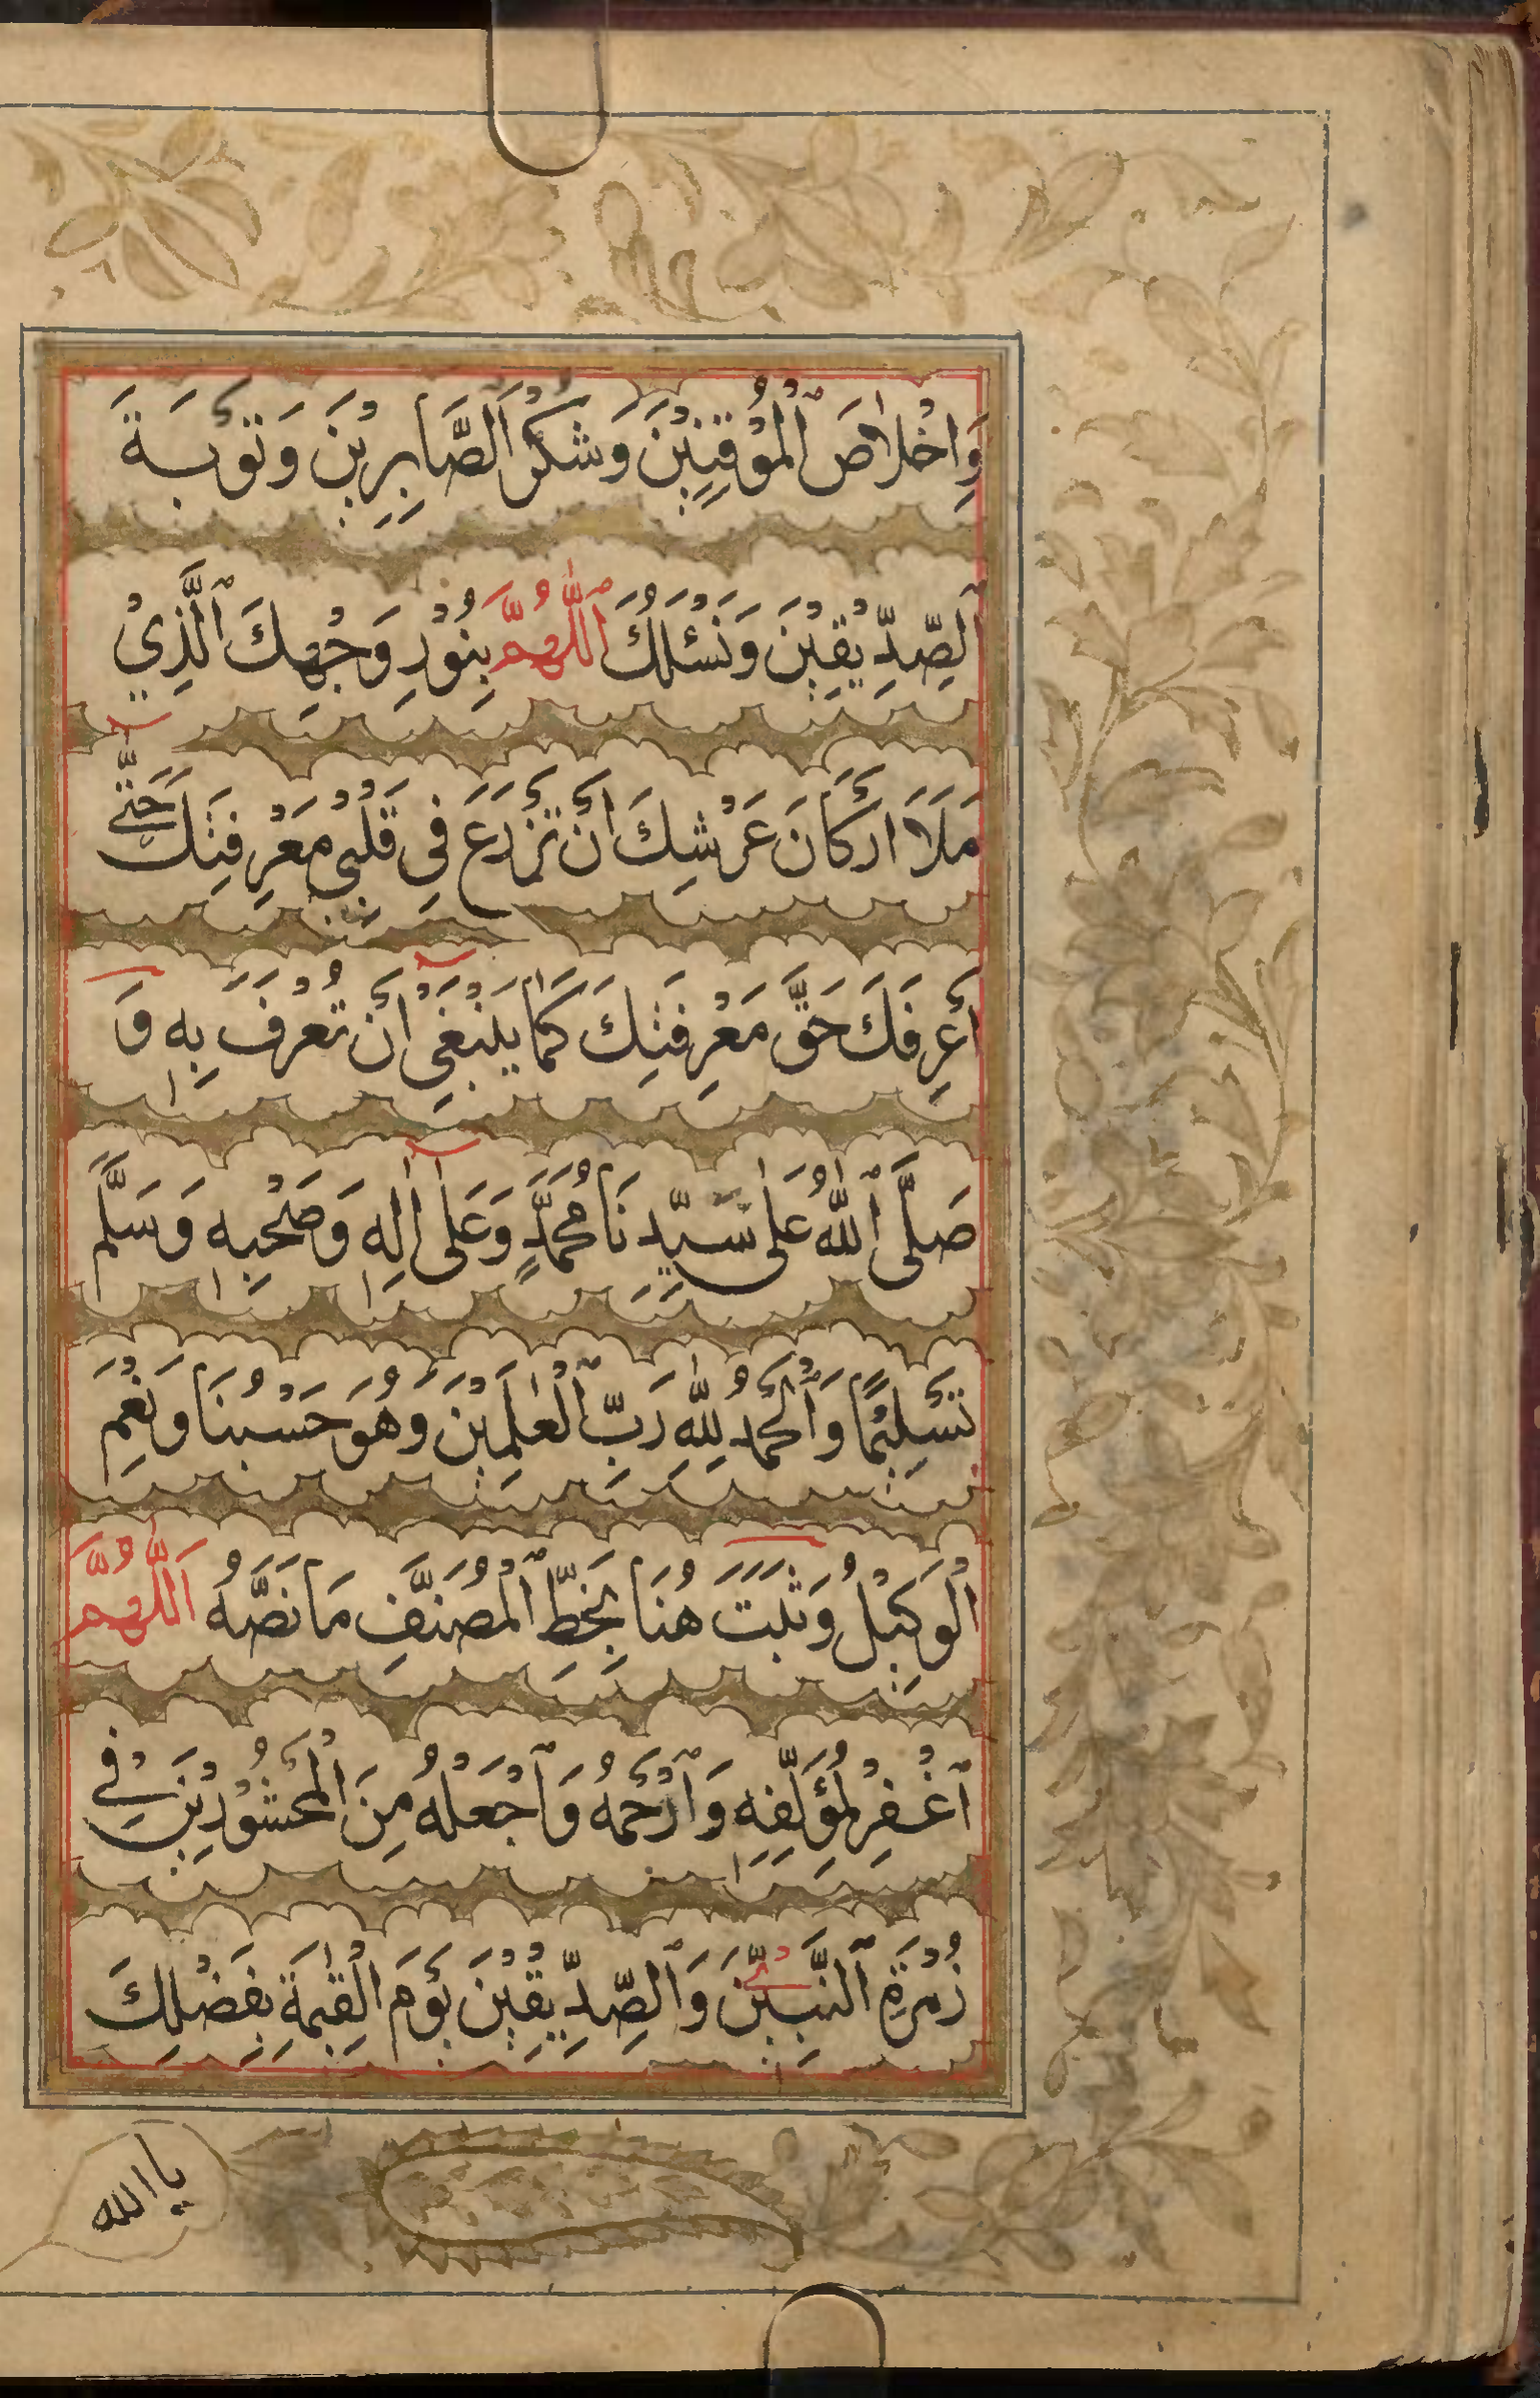 وَاِخْلَاصَ الْمُوْقِنِيْنَ وَشُكْرَ الصَّابِرِيْنَ وَتَوْبَةَ
الصِّدِّيْقِيْنَ وَنَسْئَلُكَ اَللّٰهُمَّ بِنُوْرِ وَجْهِكَ الَّذِيْ
مَلَاَ اَرْكَانَ عَرْشِكَ اَنْ تَزْرَعَ فِي قَلْبِيْ مَعْرِفَتَكَ حَتّٰى
اَعْرِفَكَ حَقَّ مَعْرِفَتِكَ كَمَا يَنْبَغِيْ اَنْ تُعْرَفَ بِهٖ وَ
صَلَّى اللّٰهُ عَلٰى سَيِّدِنَا مُحَمَّدٍ وَعَلٰى اٰلِهٖ وَصَحْبِهٖ وَسَلَّمَ
تَسْلِيْمًا وَالْحَمْدُ لِلّٰهِ رَبِّ الْعٰلَمِيْنَ وَهُوَ حَسْبُنَا وَنِعْمَ
الْوَكِيْلُ وَثَبَتَ هُنَا بِخَطِّ الْمُصَنِّفِ مَا نَصُّهُ اَللّٰهُمَّ
اغْفِرْ لِمُؤَلِّفِهٖ وَارْحَمْهُ وَاجْعَلْهُ مِنَ الْمَحْشُوْرِيْنَ فِيْ
زُمْرَةِ النَّبِيِّيْنَ وَالصِّدِّيْقِيْنَ يَوْمَ الْقِيٰمَةِ بِفَضْلِكَ
يا الله